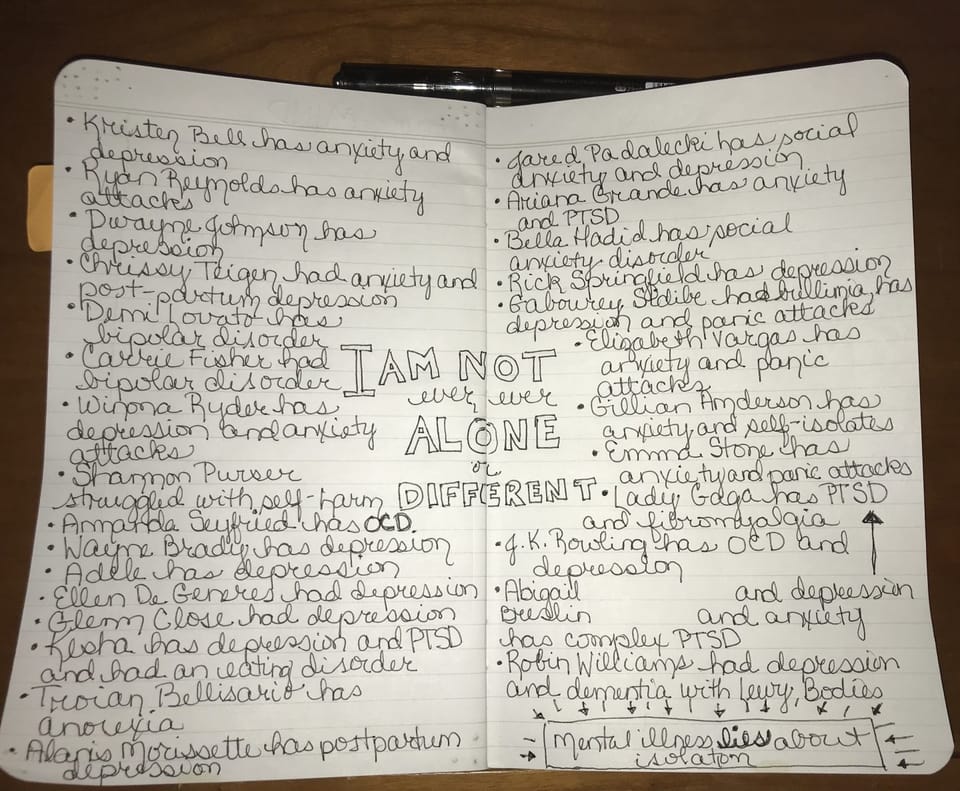 • Kristen Bell has anxiety and
depression
• Ryan Reynolds has anxiety
attacks
• Dwayne Johnson has
depression
• Chrissy Teigen had anxiety and
post-partum depression
• Demi Lovato has
bipolar disorder
• Carrie Fisher had
bipolar disorder
• Winona Ryder has
depression and anxiety
attacks
• Shannon Purser
struggled with self-harm
• Amanda Seyfried has OCD
• Wayne Brady has depression
• Adele has depression
• Ellen De Generes had depression
• Glenn Close had depression
• Kesha has depression and PTSD
and had an eating disorder
• Troian Bellisario has
anorexia
• Alanis Morissette has postpartum
depression
I AM NOT
ever, ever
ALONE
or
DIFFERENT
• Jared Padalecki has social
anxiety and depression
• Ariana Grande has anxiety
and PTSD
• Bella Hadid has social
anxiety disorder
• Rick Springfield has depression
• Gabourey Sidibe had bullimia, has
depression and panic attacks
• Elizabeth Vargas has
anxiety and panic
attacks
• Gillian Anderson has
anxiety and self-isolates
• Emma Stone has
anxiety and panic attacks
• Lady Gaga has PTSD
and fibromyalgia
and depression
and anxiety
• J.K. Rowling has OCD and
depression
• Abigail
Breslin
has complex PTSD
• Robin Williams had depression
and dementia with Lewy Bodies
Mental illness lies about
isolation